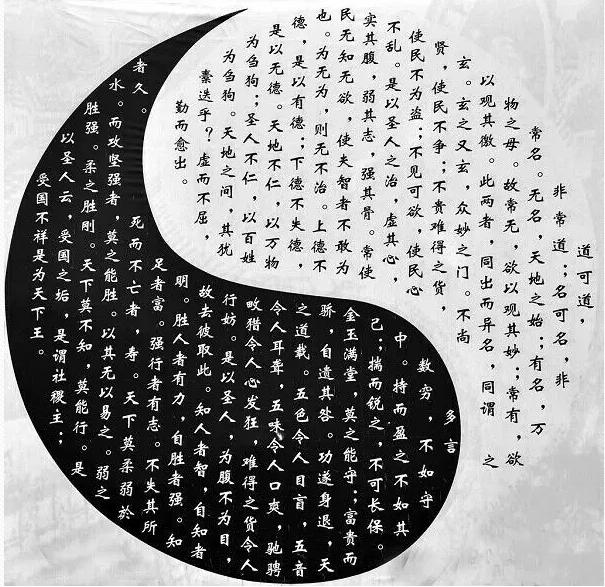 道可道，
非常道；名可名，非
常名。无名，天地之始；有名，万
物之母。故常无，欲以观其妙；常有，欲
以观其徼。此两者，同出而异名，同谓之
玄。玄之又玄，众妙之门。不尚
贤，使民不争；不贵难得之货，
使民不为盗；不见可欲，使民心
不乱。是以圣人之治，虚其心，
实其腹，弱其志，强其骨。常使
民无知无欲，使夫智者不敢为
也。为无为，则无不治。上德不
德，是以有德；下德不失德，
是以无德。天地不仁，以万物
为刍狗；圣人不仁，以百姓
为刍狗。天地之间，其犹
橐迭乎？虚而不屈，
勤而愈出。
多言
数穷，不如守
中。持而盈之不如其
己；揣而锐之，不可长保。
金玉满堂，莫之能守；富贵而
骄，自遗其咎。功遂身退，天
之道载。五色令人目盲，五音
令人耳聋，五味令人口爽，驰骋
畋猎令人心发狂，难得之货令人
行妨。是以圣人，为腹不为目，
故去彼取此。知人者智，自知者
明。胜人者有力，自胜者强。知
足者富。强行者有志。不失其所
者久。死而不亡者，寿。天下莫柔弱於
水。而攻坚强者，莫之能胜。以其无以易之。弱之
胜强。柔之胜刚。天下莫不知，莫能行。是
以圣人云，受国之垢，是谓社稷主；
受国不祥是为天下王。